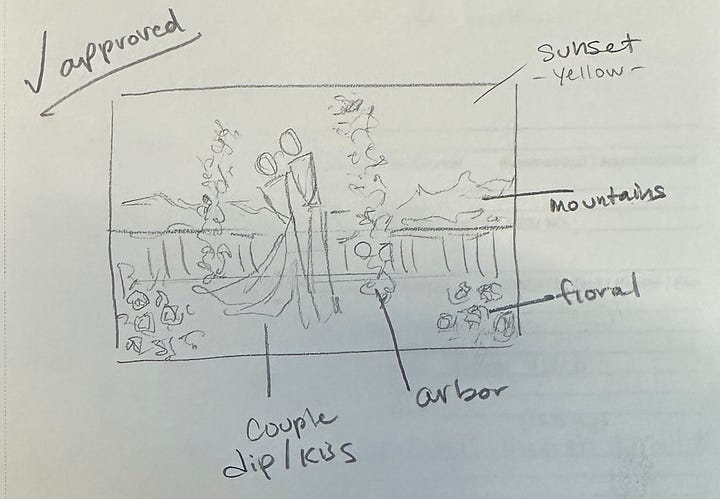 ✓ approved
sunset
- yellow -
mountains
floral
arbor
couple
dip/kiss